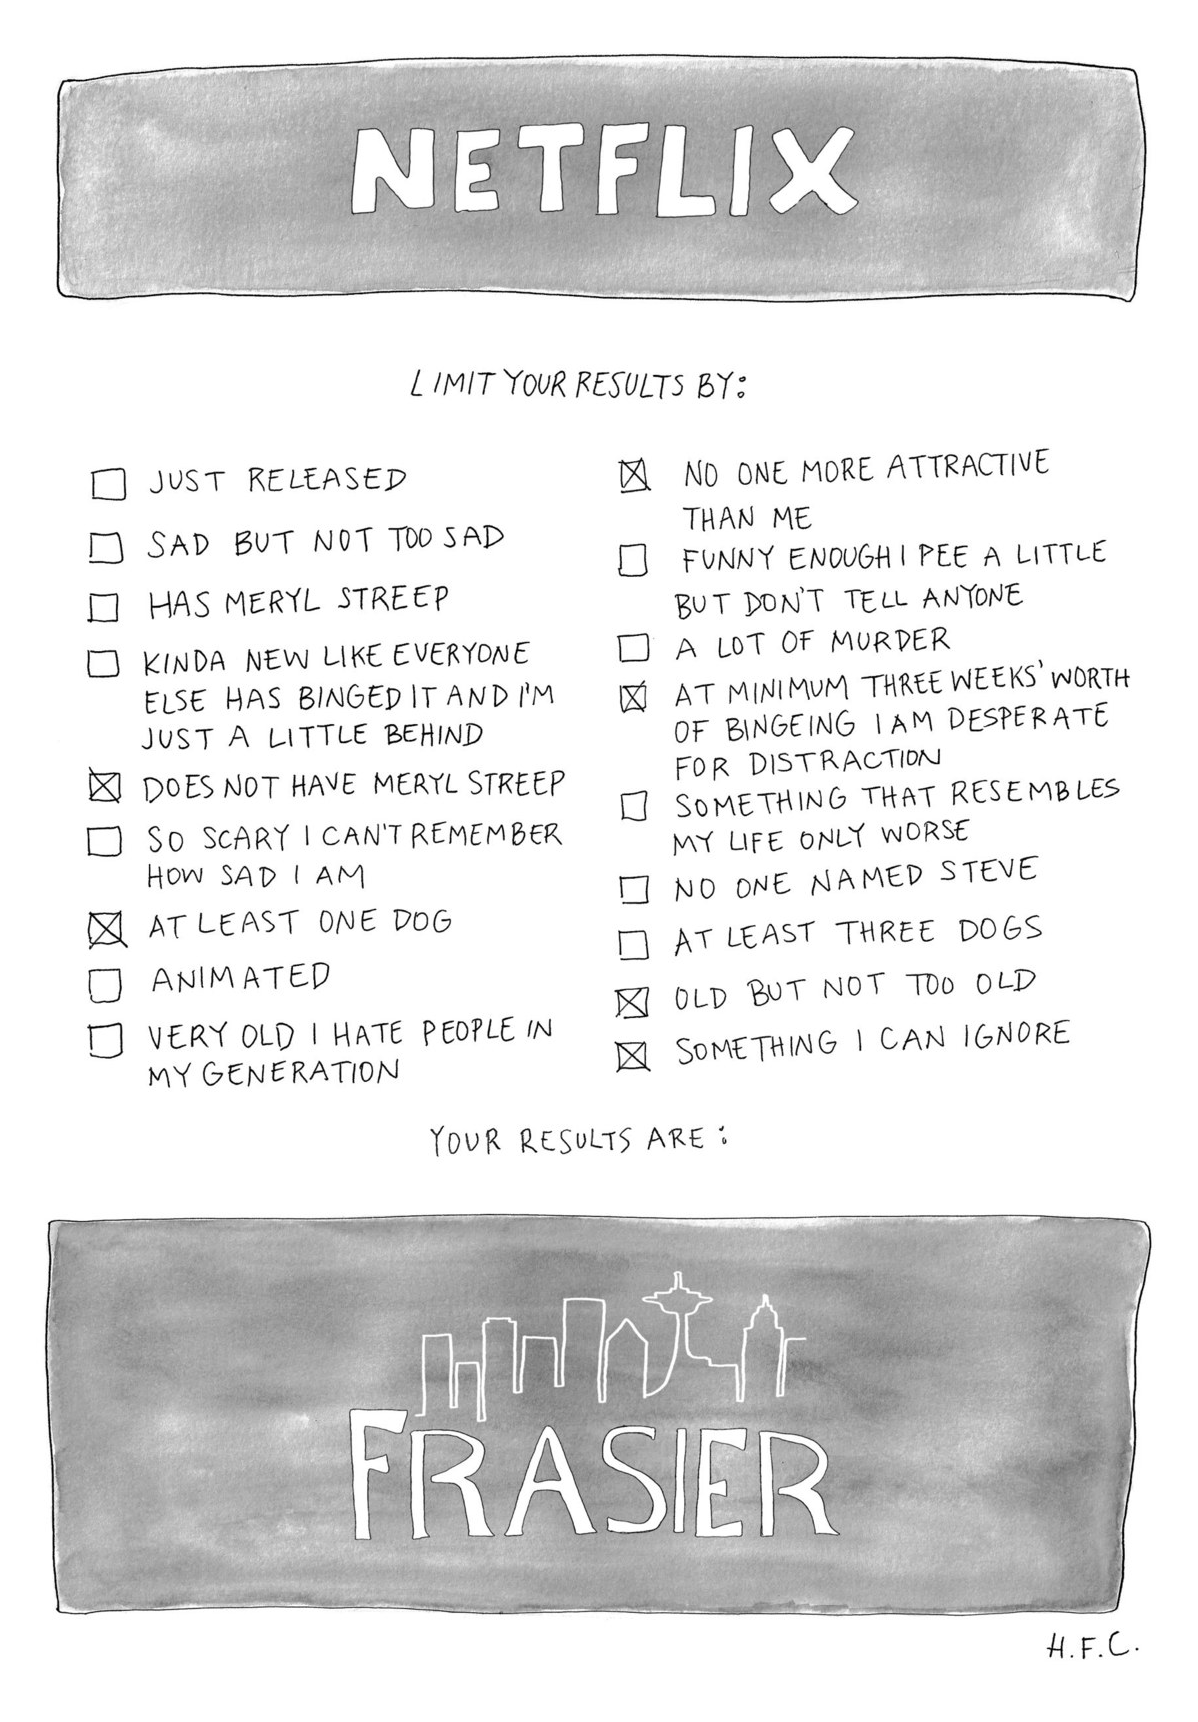 NETFLIX
LIMIT YOUR RESULTS BY:
JUST RELEASED
SAD BUT NOT TOO SAD
HAS MERYL STREEP
KINDA NEW LIKE EVERYONE
ELSE HAS BINGED IT AND I'M
JUST A LITTLE BEHIND
DOES NOT HAVE MERYL STREEP
SO SCARY I CAN'T REMEMBER
HOW SAD I AM
AT LEAST ONE DOG
ANIMATED
VERY OLD I HATE PEOPLE IN
MY GENERATION
NO ONE MORE ATTRACTIVE
THAN ME
FUNNY ENOUGH I PEE A LITTLE
BUT DON'T TELL ANYONE
A LOT OF MURDER
AT MINIMUM THREE WEEKS' WORTH
OF BINGEING I AM DESPERATE
FOR DISTRACTION
SOMETHING THAT RESEMBLES
MY LIFE ONLY WORSE
NO ONE NAMED STEVE
AT LEAST THREE DOGS
OLD BUT NOT TOO OLD
SOMETHING I CAN IGNORE
YOUR RESULTS ARE:
FRASIER
H.F.C.